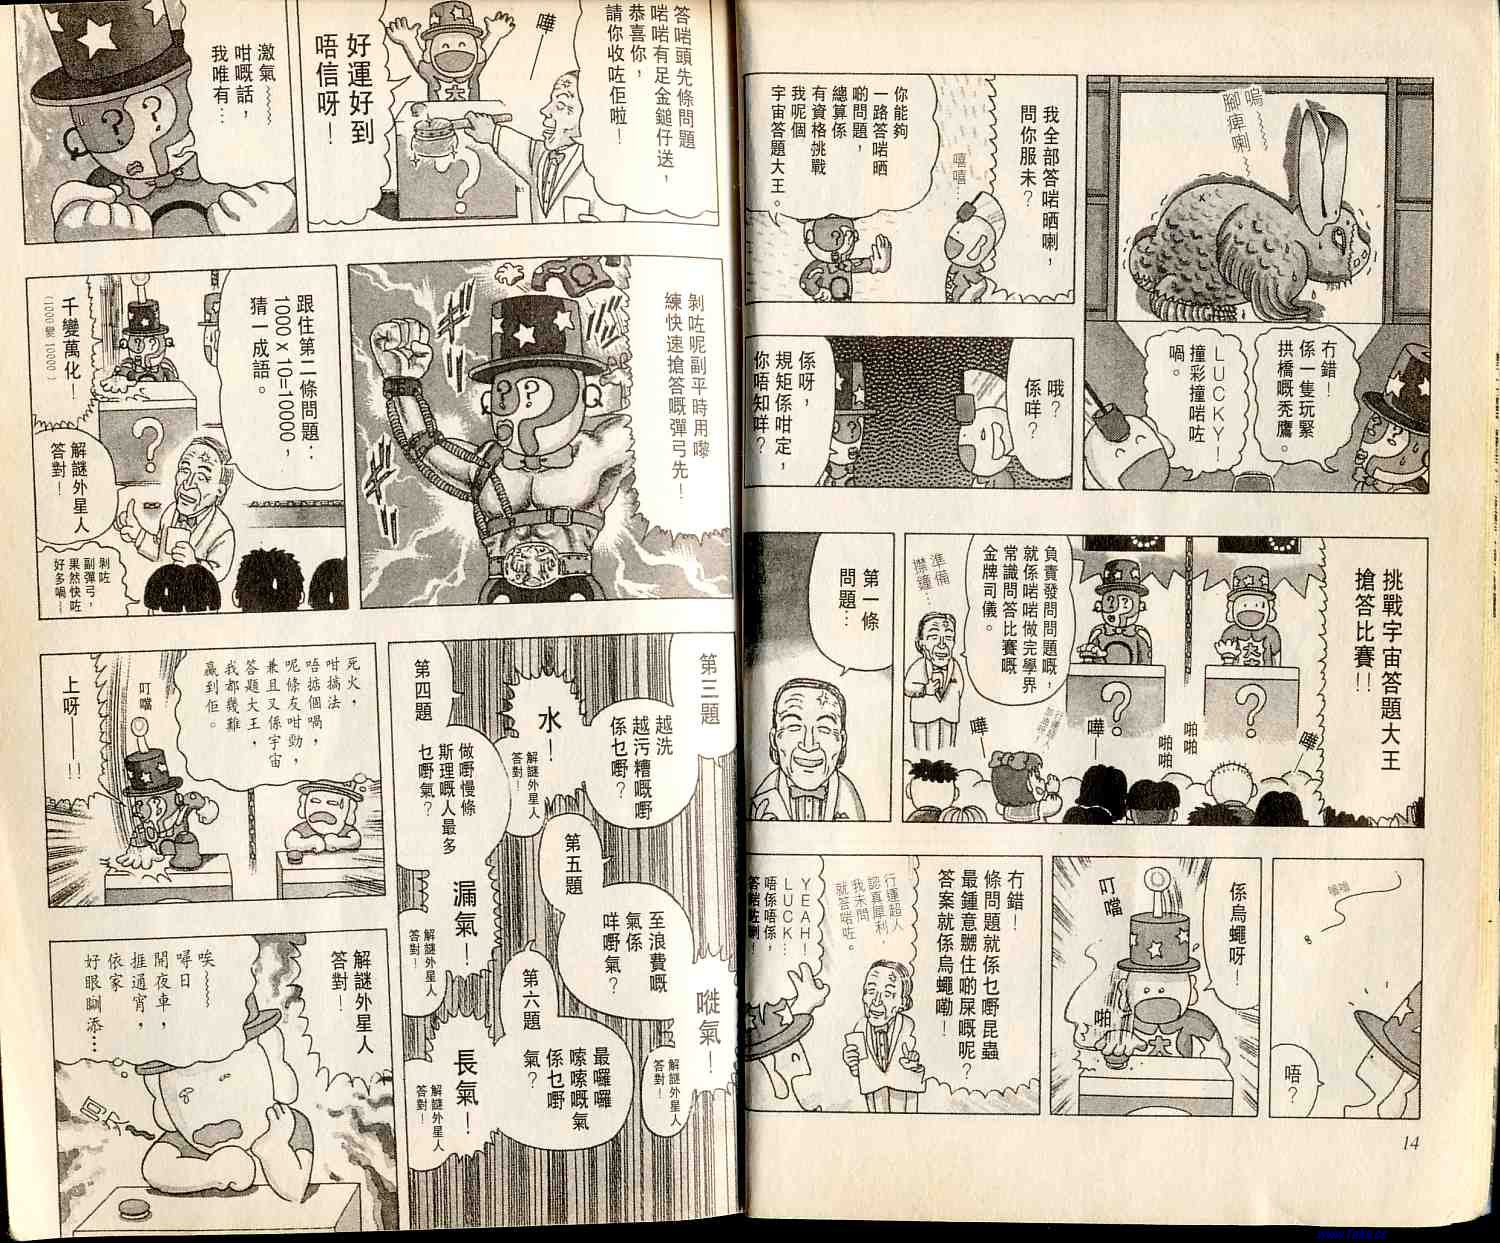 嗚
腳痺喇
冇錯！
係一隻玩緊
拱橋嘅禿鷹。
LUCKY！
撞彩撞啱咗
喎。
我全部答啱晒喇，
問你服未？
嘻嘻…
你能夠
一路答啱晒
啲問題，
總算係
有資格挑戰
我呢個
宇宙答題大王。
哦？
係咩？
係呀，
規矩係咁定，
你唔知咩？
挑戰宇宙答題大王
搶答比賽！！
負責發問問題嘅，
就係啱啱做完學界
常識問答比賽嘅
金牌司儀。
準備
㩒鐘…
嘩
嘩
嘩
啪啪
啪啪
第一條
問題…
嗡嗡
唔？
係烏蠅呀！
叮噹
啪
冇錯！
條問題就係乜嘢昆蟲
最鍾意嬲住啲屎嘅呢？
答案就係烏蠅嘞！
行運超人
認真犀利，
我未問
就答啱咗。
YEAH！
LUCK…
唔係唔係，
答啱咗喇！
14
答啱頭先條問題
啱啱有足金鎚仔送，
恭喜你，
請你收咗佢啦！
嘩
好運好到
唔信呀！
激氣
咁嘅話，
我唯有…
剝咗呢副平時用嚟
練快速搶答嘅彈弓先！
跟住第二條問題：
1000 x 10=10000，
猜一成語。
千變萬化！
（1000 變 10000）
解謎外星人
答對！
剝咗
副彈弓，
果然快咗
好多喎
第三題
越洗
越污糟嘅嘢
係乜嘢？
水！
解謎外星人
答對！
第四題
做嘢慢條
斯理嘅人最多
乜嘢氣？
漏氣！
解謎外星人
答對！
第五題
至浪費嘅
氣係
咩嘢氣？
嘥氣！
解謎外星人
答對！
第六題
最囉囉
嗦嗦嘅氣
係乜嘢
氣？
長氣！
解謎外星人
答對！
死火，
咁搞法
唔掂個喎，
呢條友咁勁，
兼且又係宇宙
答題大王，
我都幾難
贏到佢。
叮噹
上呀——！！
解謎外星人
答對！
唉
噚日
開夜車，
捱通宵，
依家
好眼瞓添…